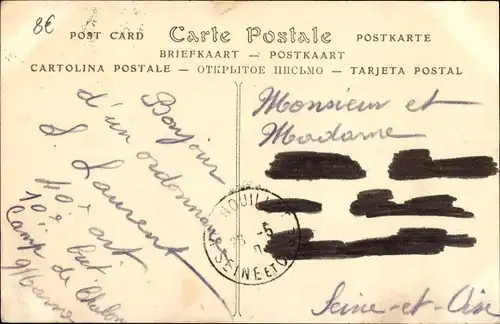 8€
POST CARD Carte Postale POSTKARTE
BRIEFKAART — POSTKAART
CARTOLINA POSTALE — ОТКРЫТОЕ ПИСЬМО — TARJETA POSTAL
Bonjour
d'un ordonnance
S. Laurent
40e art
10e but
Camp de Chalons
Marne
Monsieur et
Madame
Seine-et-Oise
SEINE ET O